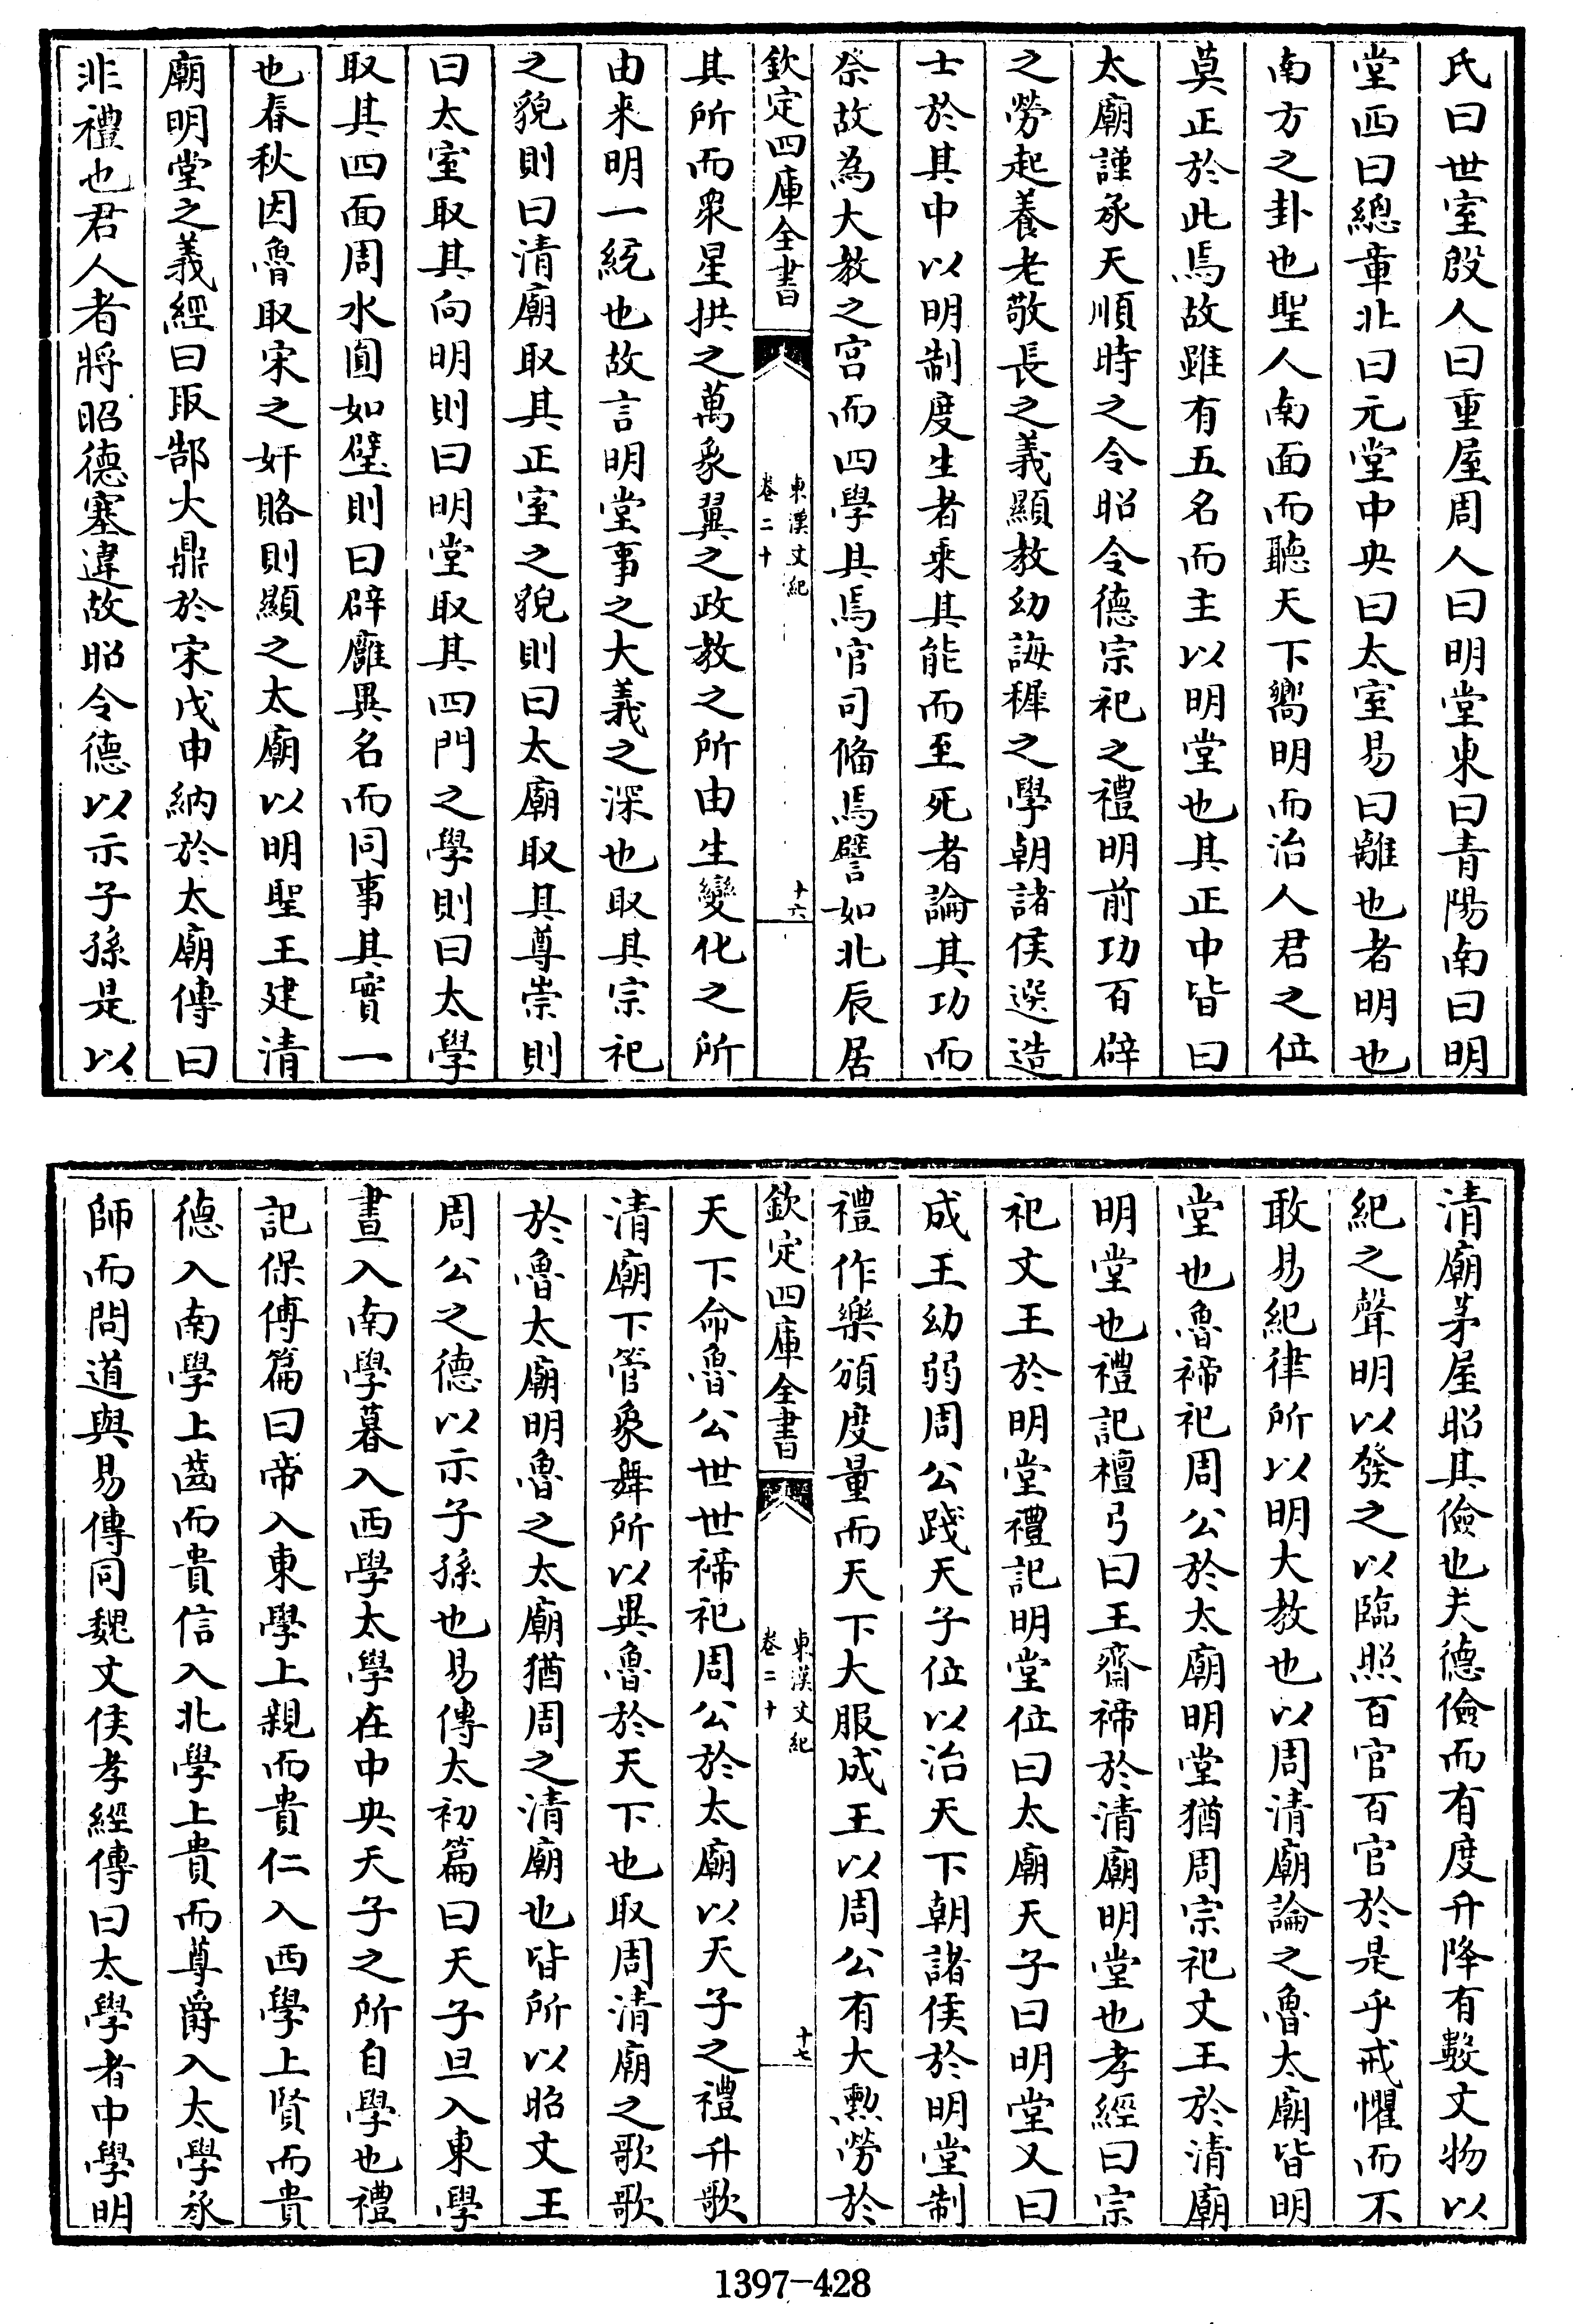 氏曰世室殷人曰重屋周人曰明堂東曰青陽南曰明
堂西曰總章北曰元堂中央曰太室易曰離也者明也
南方之卦也聖人南面而聽天下嚮明而治人君之位
莫正於此焉故雖有五名而主以明堂也其正中皆曰
太廟謹承天順時之令昭令德宗祀之禮明前功百辟
之勞起養老敬長之義顯教幼誨穉之學朝諸侯選造
士於其中以明制度生者乘其能而至死者論其功而
祭故為大教之宮而四學具焉官司備焉譬如北辰居
欽定四庫全書
東漢文紀
卷二十
十六
其所而衆星拱之萬象翼之政教之所由生變化之所
由來明一統也故言明堂事之大義之深也取其宗祀
之貌則曰清廟取其正室之貌則曰太廟取其尊崇則
曰太室取其向明則曰明堂取其四門之學則曰太學
取其四面周水圓如璧則曰辟廱異名而同事其實一
也春秋因魯取宋之奸賂則顯之太廟以明聖王建清
廟明堂之義經曰取郜大鼎於宋戊申納於太廟傳曰
非禮也君人者將昭德塞違故昭令德以示子孫是以
清廟茅屋昭其儉也夫德儉而有度升降有數文物以
紀之聲明以發之以臨照百官百官於是乎戒懼而不
敢易紀律所以明大教也以周清廟論之魯太廟皆明
堂也魯禘祀周公於太廟明堂猶周宗祀文王於清廟
明堂也禮記檀弓曰王齋禘於清廟明堂也孝經曰宗
祀文王於明堂禮記明堂位曰太廟天子曰明堂又曰
成王幼弱周公踐天子位以治天下朝諸侯於明堂制
禮作樂頒度量而天下大服成王以周公有大勲勞於
欽定四庫全書
東漢文紀
卷二十
十七
天下命魯公世世禘祀周公於太廟以天子之禮升歌
清廟下管象舞所以異魯於天下也取周清廟之歌歌
於魯太廟明魯之太廟猶周之清廟也皆所以昭文王
周公之德以示子孫也易傳太初篇曰天子旦入東學
晝入南學暮入西學太學在中央天子之所自學也禮
記保傅篇曰帝入東學上親而貴仁入西學上賢而貴
德入南學上齒而貴信入北學上貴而尊爵入太學承
師而問道與易傳同魏文侯孝經傳曰太學者中學明
1397-428